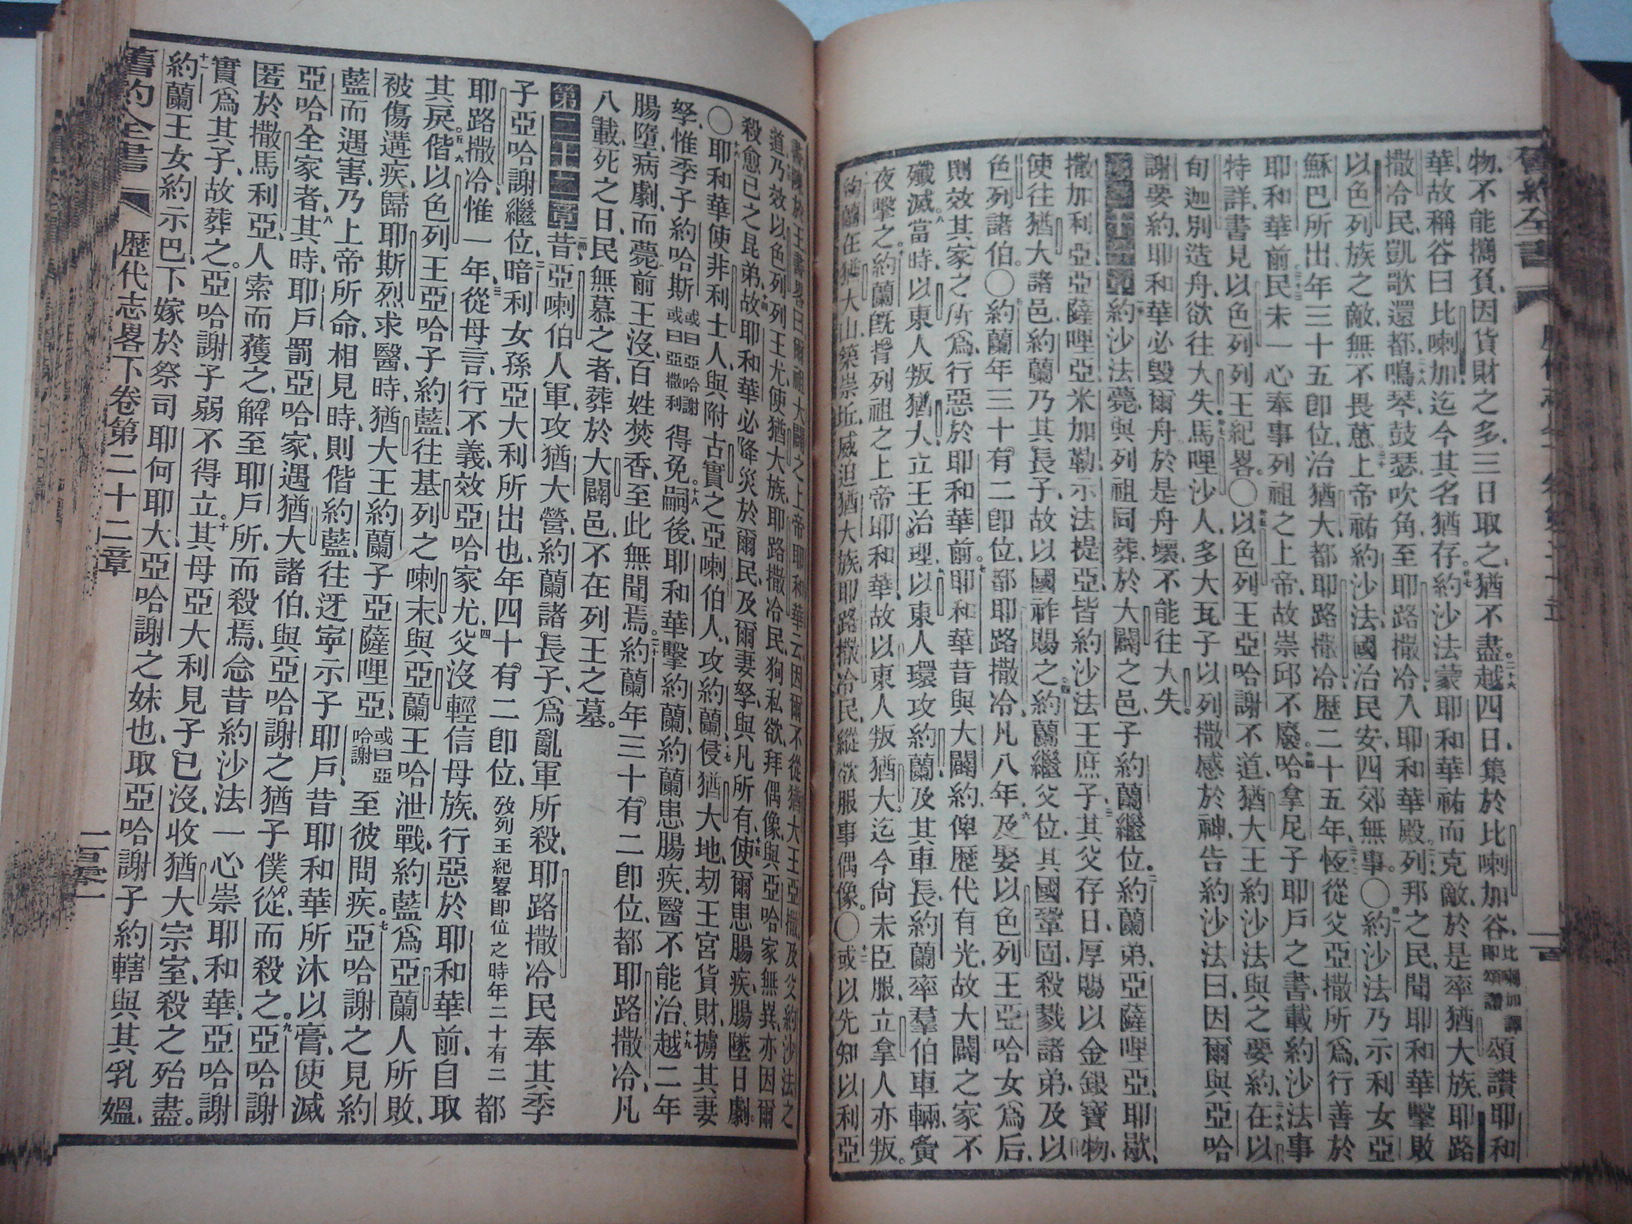 物、不能攜負、因貨財之多、三日取之、猶不盡、越四日、集於比喇加谷、比喇加譯卽頌讚頌讚耶和
華、故稱谷曰比喇加、迄今其名猶存、約沙法蒙耶和華祐而克敵、於是率猶大族、耶路
撒冷民、凱歌還都、鳴琴鼓瑟吹角、至耶路撒冷、入耶和華殿、列邦之民、聞耶和華擊敗
以色列族之敵、無不畏葸、上帝祐約沙法國治民安、四郊無事。〇約沙法乃示利女亞
蘇巴所出、年三十五卽位、治猶大、都耶路撒冷、歷二十五年、恆從父亞撒所爲、行善於
耶和華前、民未一心奉事列祖之上帝、故崇邱不廢、哈拿尼子耶戶之書、載約沙法事
特詳、書見以色列列王紀畧。〇以色列王亞哈謝不道、猶大王約沙法與之要約、在以
旬迦別造舟、欲往大失、馬哩沙人、多大瓦子以列撒感於神、告約沙法曰、因爾與亞哈
謝要約、耶和華必毀爾舟、於是舟壞、不能往大失。
約沙法薨、與列祖同葬於大闢之邑、子約蘭繼位、約蘭弟、亞薩哩亞、耶歇、
撒加利亞、亞薩哩亞、米加勒、示法提亞、皆約沙法王庶子、其父存日、厚賜以金銀寶物、
使往猶大諸邑、約蘭乃其長子、故以國祚賜之、約蘭繼父位、其國鞏固、殺戮諸弟、及以
色列諸伯。〇約蘭年三十有二卽位、都耶路撒冷、凡八年、及娶以色列王亞哈女爲后、
則效其家之所爲、行惡於耶和華前、耶和華昔與大闢約、俾歷代有光、故大闢之家不
殲滅、當時以東人叛猶大、立王治理、以東人環攻約蘭、及其車長、約蘭率羣伯車輛、賚
夜擊之、約蘭旣背列祖之上帝耶和華、故以東人叛猶大、迄今尚未臣服、立拿人亦叛。
約蘭在猶大山築崇坵、威迫猶大族、耶路撒冷民、縱欲服事偶像。〇或以先知以利亞
書陳於王、書畧曰、爾祖大闢之上帝耶和華云、因爾不從猶大王亞撒、及父約沙法之
道、乃效以色列列王、尤使猶大族、耶路撒冷民、狗私欲、拜偶像、與亞哈家無異、亦因爾
殺愈己之昆弟、故耶和華必降災於爾民、及爾妻孥、與凡所有、使爾患腸疾、腸墜日劇、
〇耶和華使非利士人、與附古實之亞喇伯人、攻約蘭、侵猶大地、刧王宮貨財、擄其妻
孥、惟季子約哈斯或曰亞哈謝或曰亞撒利得免、嗣後耶和華擊約蘭、約蘭患腸疾、醫不能治、越二年
腸墮、病劇而薨、前王沒、百姓焚香、至此無聞焉、約蘭年三十有二卽位、都耶路撒冷、凡
八載、死之日、民無慕之者、葬於大闢邑、不在列王之墓。
第二十二章昔亞喇伯人軍、攻猶大營、約蘭諸長子、爲亂軍所殺、耶路撒冷民奉其季
子亞哈謝繼位、暗利女孫亞大利所出也、年四十有二卽位、攷列王紀畧卽位之時年二十有二都
耶路撒冷、惟一年、從母言、行不義、效亞哈家尤、父沒、輕信母族、行惡於耶和華前、自取
其戾、偕以色列王亞哈子約藍、往基列之喇末、與亞蘭王哈泄戰、約藍爲亞蘭人所敗、
被傷遘疾、歸耶斯烈求醫、時猶大王約蘭子亞薩哩亞、或曰亞哈謝至彼問疾、亞哈謝之見約
藍而遇害、乃上帝所命、相見時、則偕約藍、往迓寧示子耶戶、昔耶和華所沐以膏、使滅
亞哈全家者、其時耶戶罰亞哈家、遇猶大諸伯、與亞哈謝之猶子僕從、而殺之、亞哈謝
匿於撒馬利亞、人索而獲之、解至耶戶所而殺焉、念昔約沙法一心崇耶和華、亞哈謝
實爲其子、故葬之。亞哈謝子弱、不得立、其母亞大利見子已沒、收猶大宗室、殺之殆盡。
約蘭王女約示巴、下嫁於祭司耶何耶大、亞哈謝之妹也、取亞哈謝子約轄、與其乳媼、
舊約全書 歷代志畧下卷第二十二章 一百零一